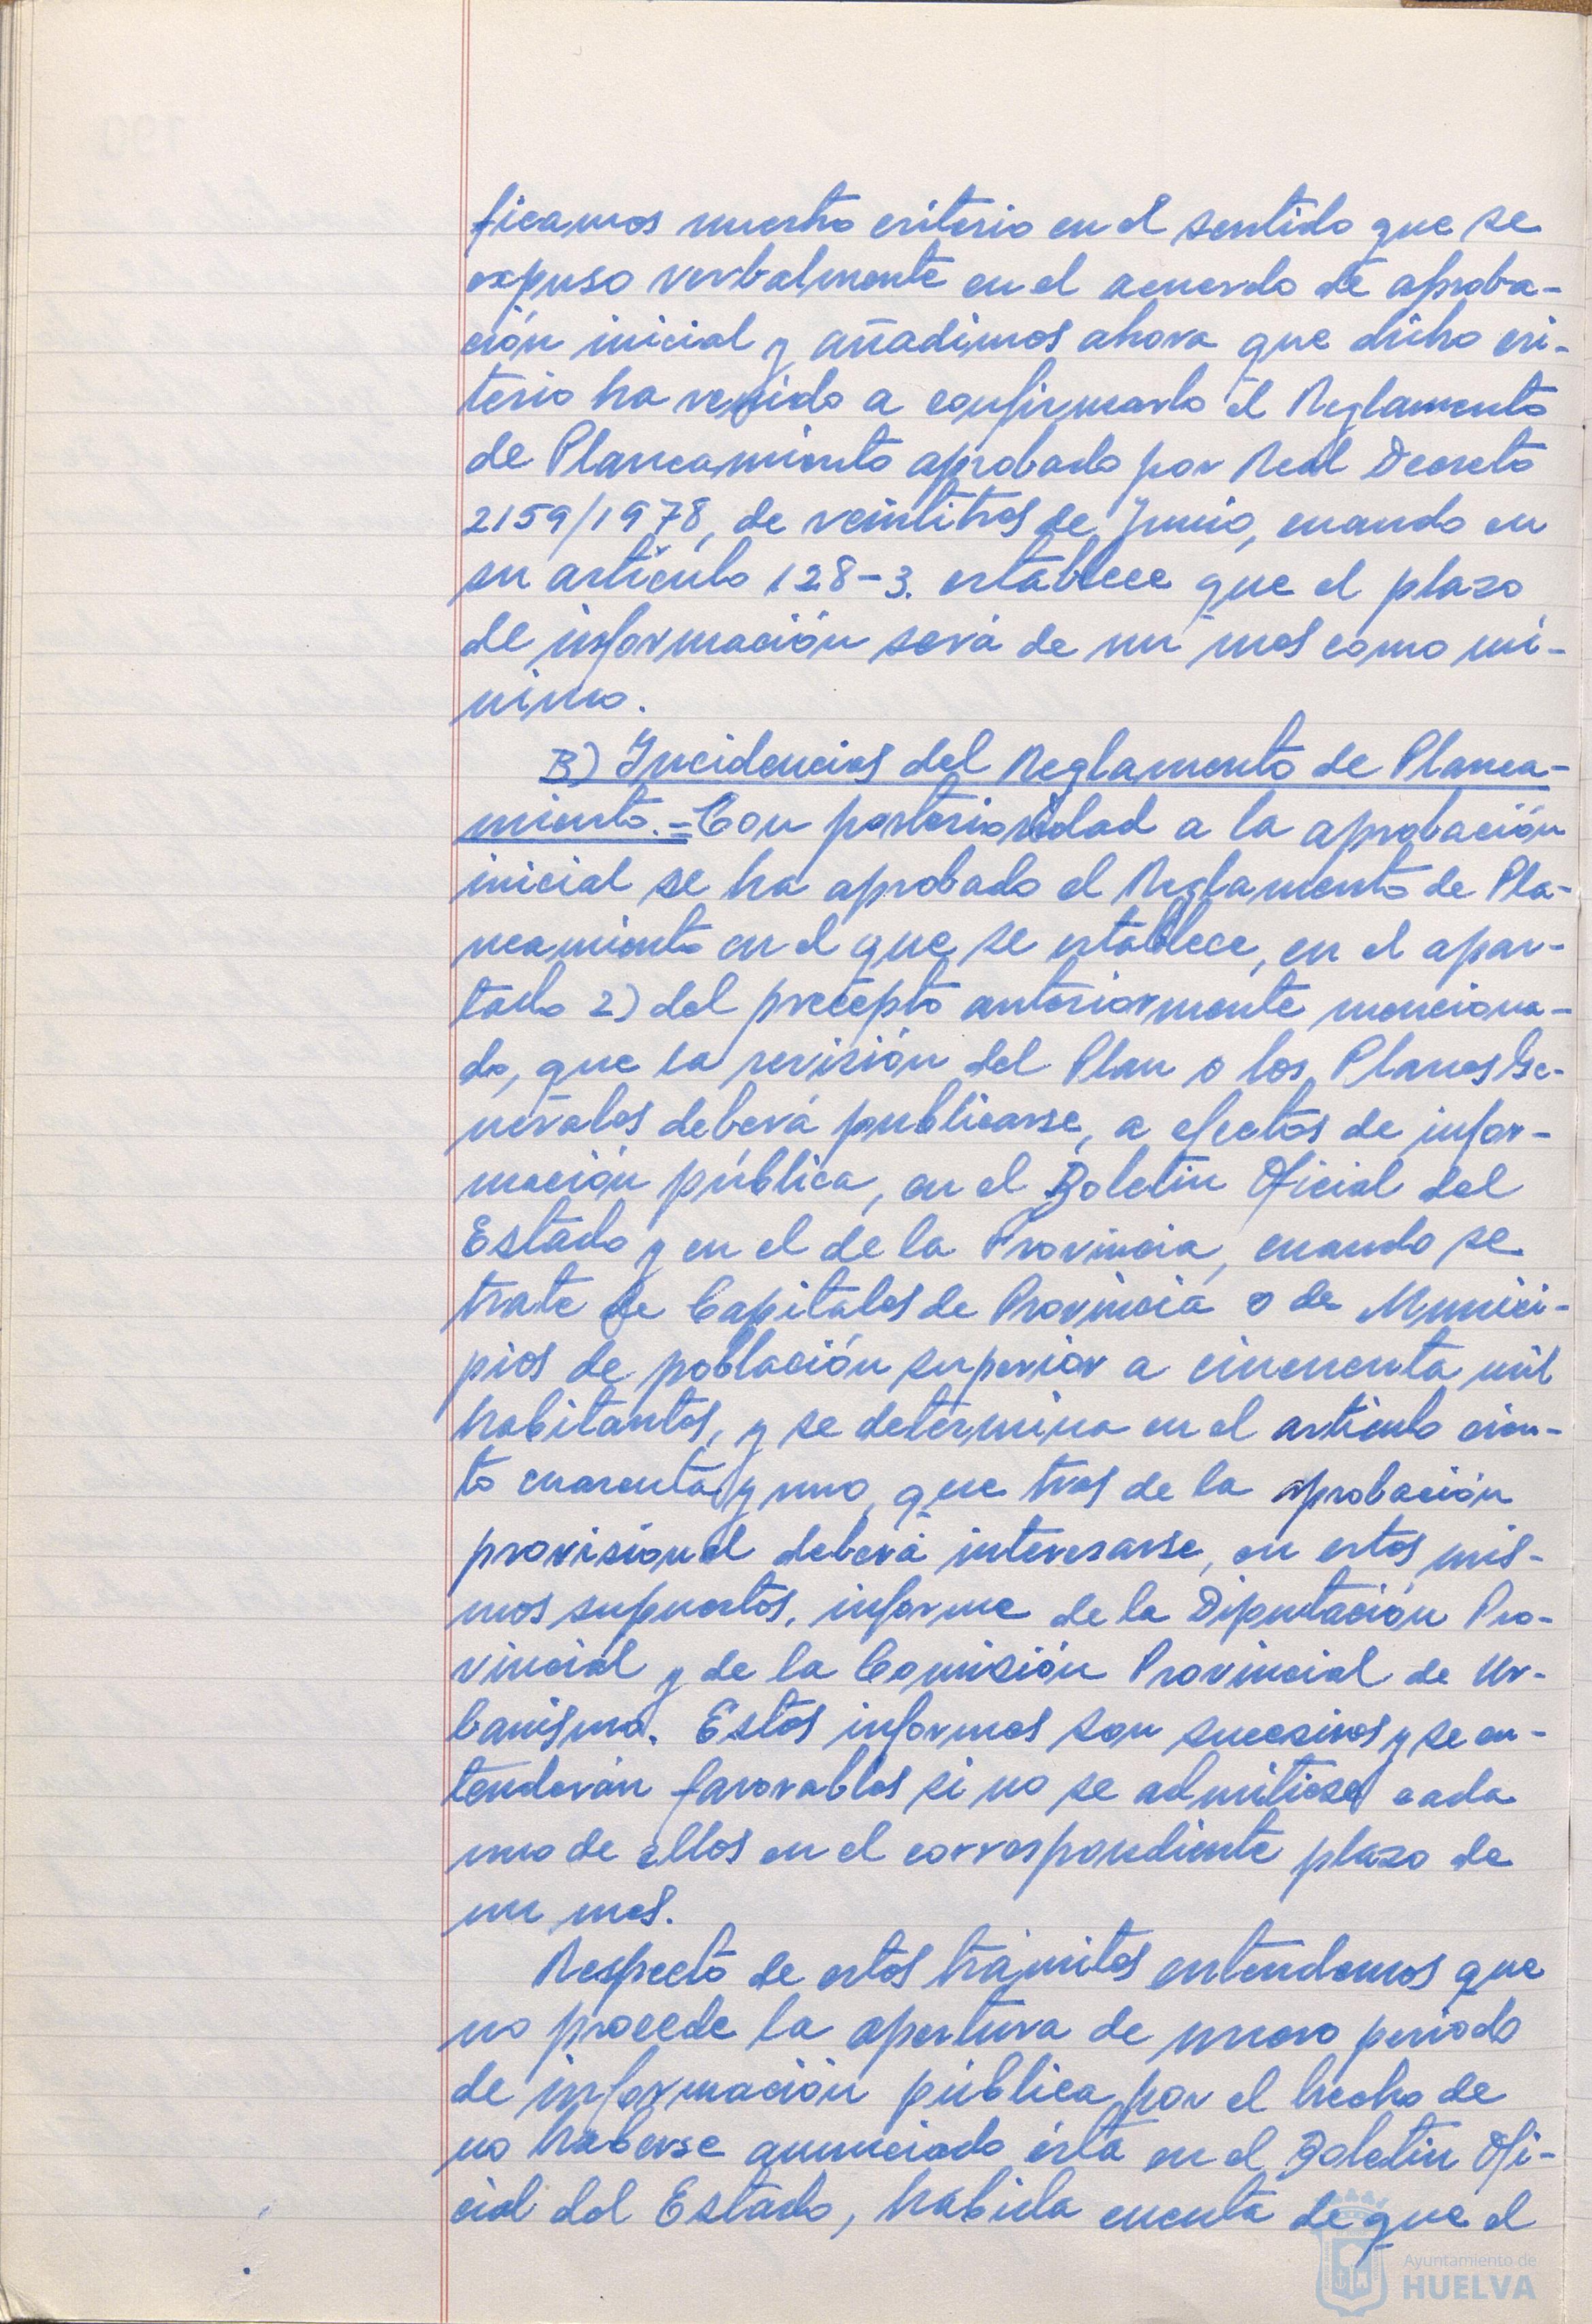 ficamos nuestro criterio en el sentido que se
expuso verbalmente en el acuerdo de aproba-
ción inicial y añadimos ahora que dicho cri-
terio ha venido a confirmarlo el Reglamento
de Planeamiento aprobado por Real Decreto
2159/1978, de veintitres de Junio, cuando en
su artículo 128-3. establece que el plazo
de información será de un mes como mí-
nimo.
B) Incidencias del Reglamento de Planea-
miento.= Con posterioridad a la aprobación
inicial se ha aprobado el Reglamento de Pla-
neamiento en el que se establece, en el apar-
tado 2) del precepto anteriormente menciona-
do, que la revisión del Plan o los Planes Ge-
nerales deberá publicarse, a efectos de infor-
mación pública, en el Boletin Oficial del
Estado y en el de la Provincia, cuando se
trate de Capitales de Provincia o de Munici-
pios de población superior a cincuenta mil
habitantes, y se determina en el artículo cien-
to cuarenta y uno, que tras de la aprobación
provisional deberá interesarse, en estos mis-
mos supuestos, informe de la Diputación Pro-
vincial y de la Comisión Provincial de Ur-
banismo. Estos informes son sucesivos y se en-
tenderán favorables si no se admitiesed cada
uno de ellos en el correspondiente plazo de
un mes.
Respecto de estos trámites entendemos que
no procede la apertura de nuevo periodo
de información pública por el hecho de
no haberse anunciado ésta en el Boletin Ofi-
cial del Estado, habida cuenta de que el
Ayuntamiento de
HUELVA